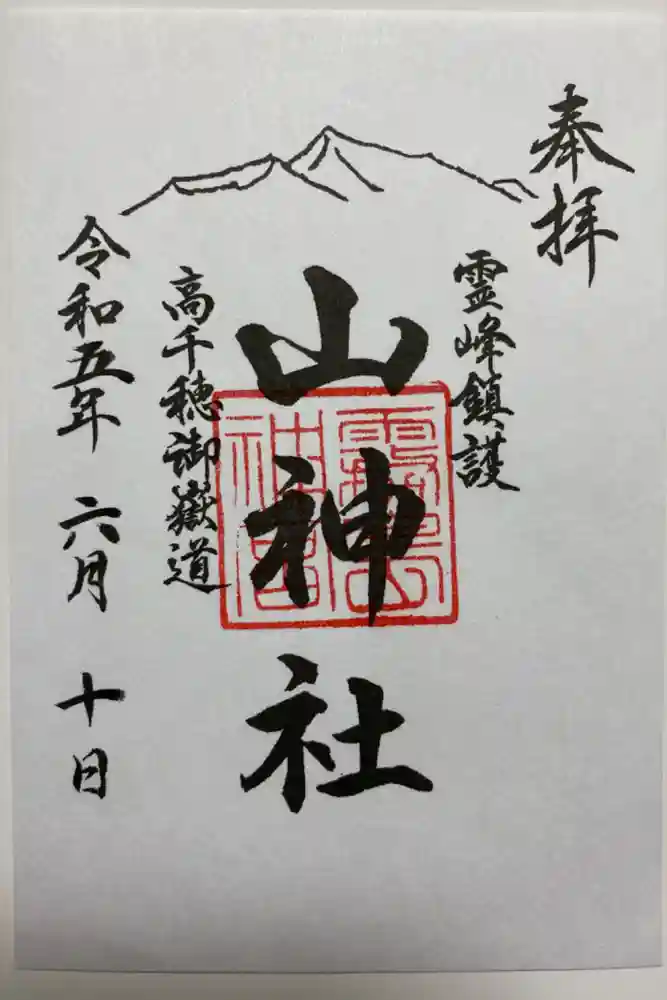 奉拝
霊峰鎮護
山神社
高千穂御嶽道
令和五年 六月 十日